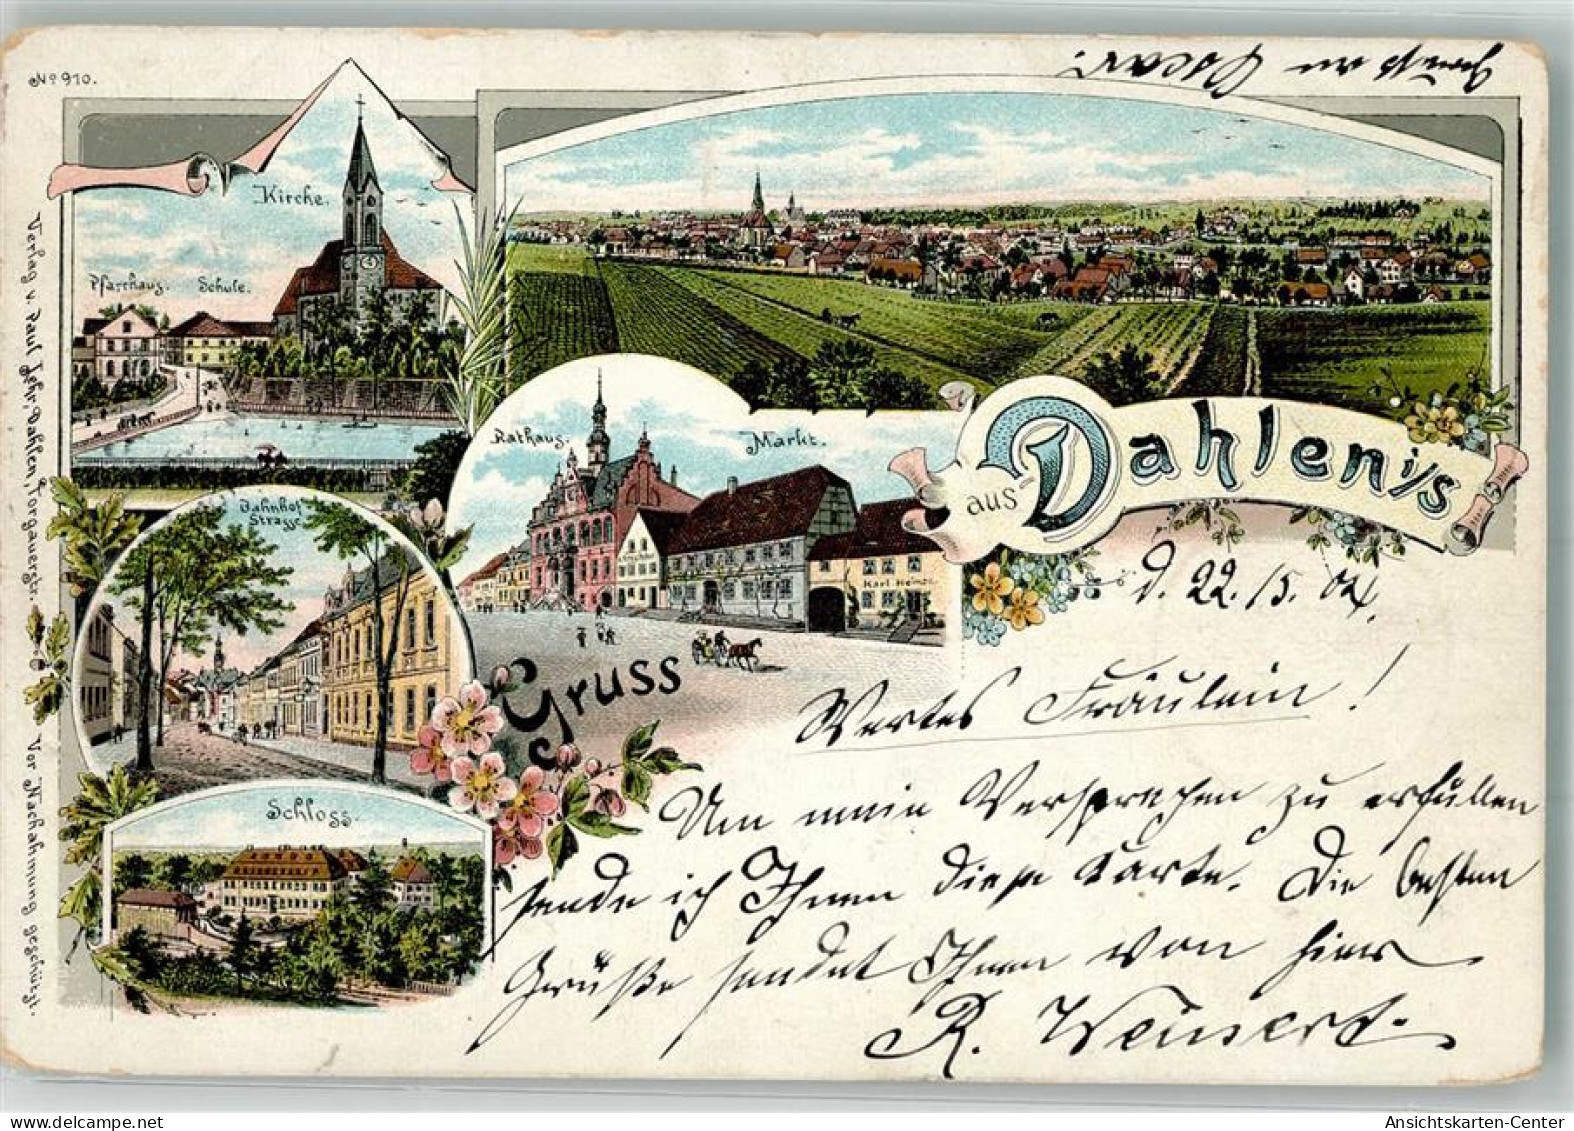 No 910.
Kirche.
Pfarrhaus. Schule.
Rathaus. Markt.
Karl Heinze
Bahnhof
Strasse
Schloss.
Gruss
aus Dahlen i/S
Verlag v. Paul Jehr, Dahlen, Torgauerstr. Vor Nachahmung geschützt.
d. 22./5. 04.
Wertes Fräulein!
Um mein Versprechen zu erfüllen
sende ich Ihnen diese Karte. Die besten
Grüße sendet Ihnen von hier
R. Weinert.
Ansichtskarten-Center